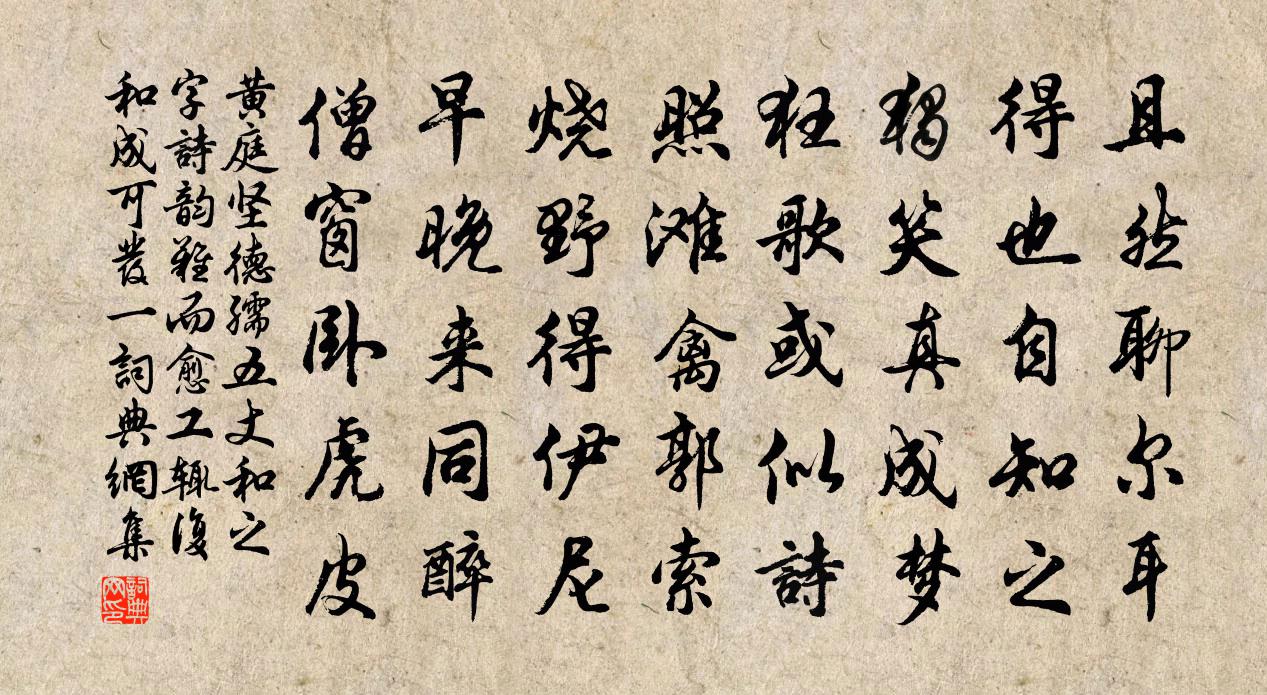 且然聊尔耳
得也自知之
独笑真成梦
狂歌或似詩
照滩禽郭索
烧野得伊尼
早晚来同醉
僧窗卧虎皮
黄庭坚德孺五丈和之
字詩韵難而愈工辄復
和成可發一 詞典網集
詞典網印